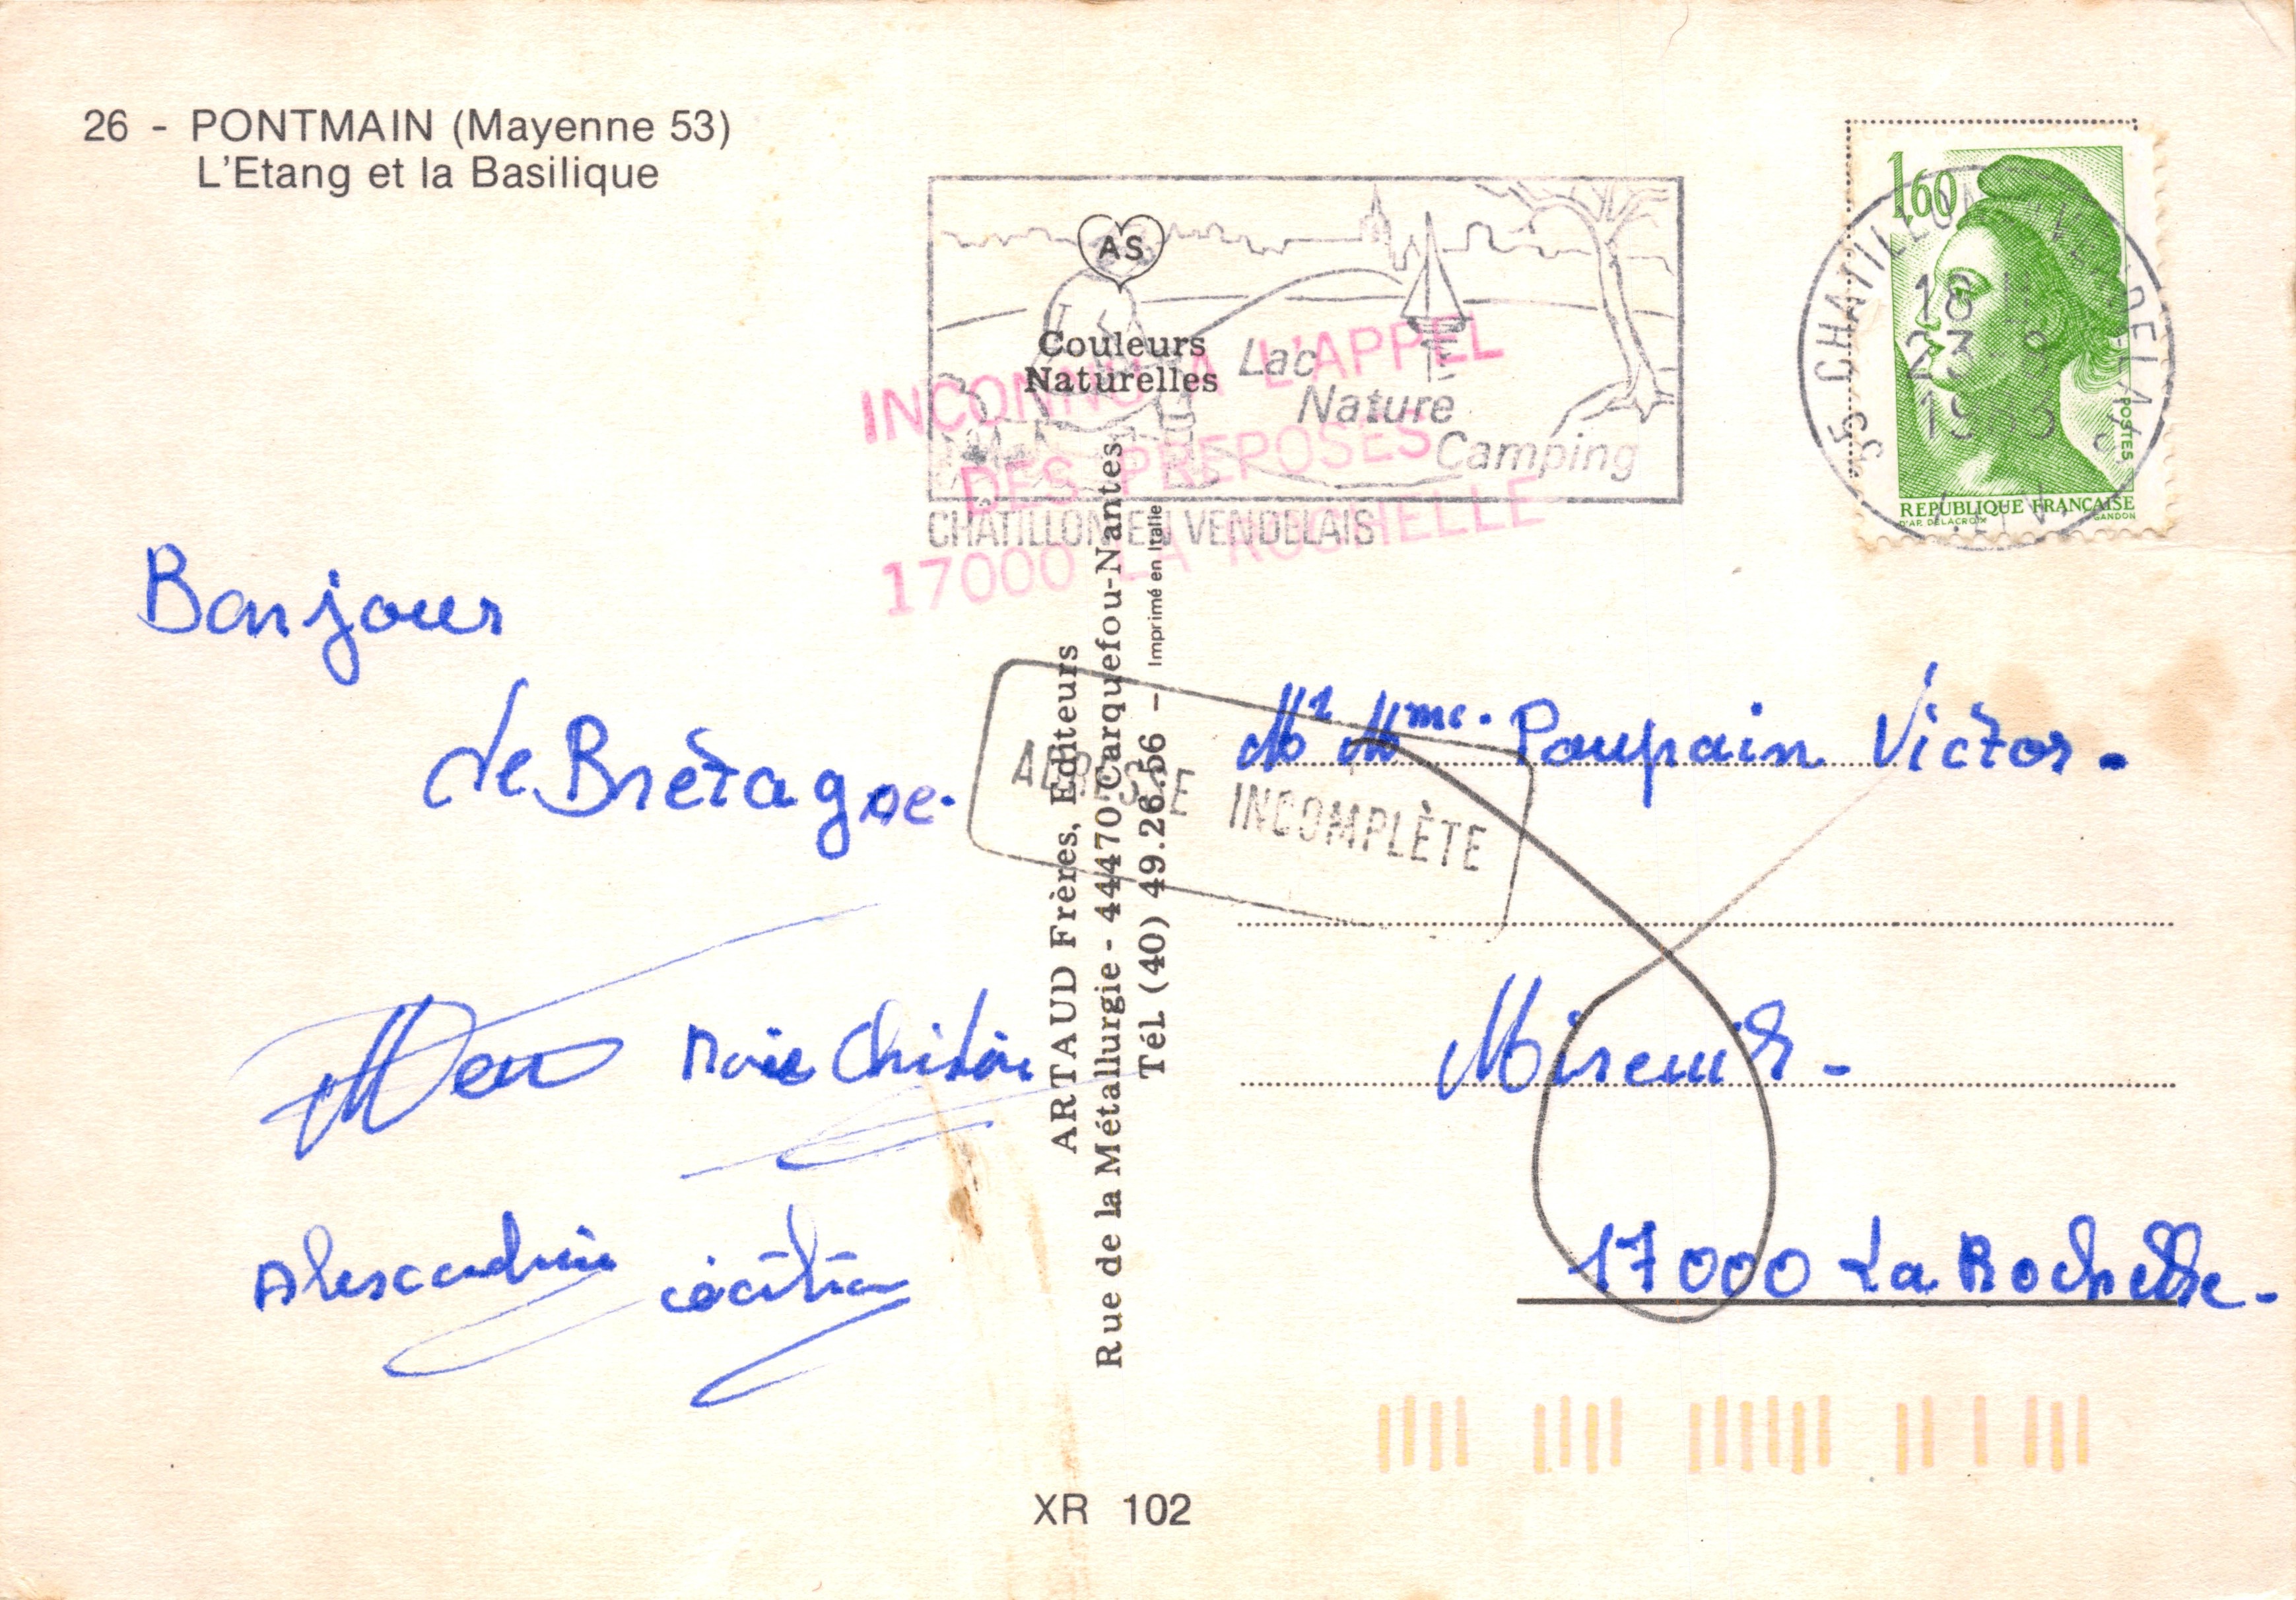 26 - PONTMAIN (Mayenne 53)
L'Etang et la Basilique
AS
Couleurs
Naturelles
Lac
Nature
Camping
CHATILLON EN VENDELAIS
INCONNU A L'APPEL
DES PREPOSES
17000 LA ROCHELLE
1,60
POSTES
REPUBLIQUE FRANÇAISE
D'AP. DELACROIX GANDON
35 CHATILLON EN VENDELAIS
18 H
23-8
1983
I.ET V.
Bonjour
de Bretagne.
Marie Christine
Alexandrine
ADRESSE INCOMPLÈTE
ARTAUD Frères, Editeurs
Rue de la Métallurgie - 44470 Carquefou-Nantes
Tél (40) 49.26.56 - Imprimé en Italie
Mr Mme. Poupain Victor.
Mireuil -
17000 La Rochelle.
XR 102